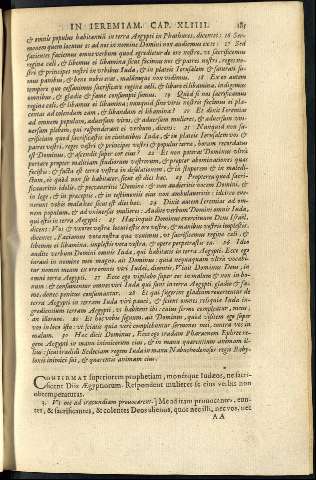 IN IEREMIAM. CAP. XLIIII. 185
& omnis populus habitantiũ in terra Aegypti in Phathures, dicentes: 16 Ser-
monem quem locutus es ad nos in nomine Domini non audiemus ex te: 17 Sed
facientes faciemus omne verbum quod egredietur de ore nostro, vt sacrificemus
reginæ cæli, & libemus ei libamina sicut fecimus nos & patres nostri, reges no-
stri & principes nostri in vrbibus Iuda, & in plateis Ierusalem & saturati su-
mus panibus, & bene nobis erat, malũmque non vidimus. 18 Ex eo autem
tempore quo cessauimus sacrificare reginæ cæli, & libare ei libamina, indigemus
omnibus, & gladio & fame consumpti sumus. 19 Quòd si nos sacrificamus
reginæ cæli, & libamus ei libamina; nunquid sine viris nostris fecimus ei pla-
centas ad colendum eam, & libandum ei libamina? 20 Et dixit Ieremias
ad omnem populum, aduersum viros, & aduersum mulieres, & aduersum vni-
uersam plebem, qui responderant ei verbum, dicens: 21 Nunquid non sa-
crificium quod sacrificastis in ciuitatibus Iuda, & in plateis Ierusalem vos &
patres vestri, reges vestri & principes vestri & populus terræ, horum recordatus
est Dominus, & ascendit super cor eius? 22 Et non poterat Dominus vltra
portare propter malitiam studiorum vestrorum, & propter abominationes quas
fecistis: & facta est terra vestra in desolationem, & in stuporem & in maledi-
ctum, eò quòd non sit habitator, sicut est dies hæc. 23 Propterea quòd sacri-
ficaueritis idolis, & peccaueritis Domino & non audieritis vocem Domini, &
in lege, & in præceptis, & in testimoniis eius non ambulaueritis: idcirco eue-
nerunt vobis mala hæc sicut est dies hæc. 24 Dixit autem Ieremias ad om-
nem populum, & ad vniuersas mulieres: Audite verbum Domini omnis Iuda,
qui estis in terra Aegypti: 25 Hæc inquit Dominus exercituum Deus Israël,
dicens: Vos & vxores vestræ locuti estis ore vestro, & manibus vestris implestis,
dicentes: Faciamus vota nostra quæ vouimus, vt sacrificemus reginæ cæli, &
libemus ei libamina. implestis vota vestra, & opere perpetrastis ea. 26 Ideo
audite verbum Domini omnis Iuda, qui habitatis in terra Aegypti: Ecce ego
iuraui in nomine meo magno, ait Dominus: quia nequaquam vltra vocabi-
tur nomen meum ex ore omnis viri Iudæi, dicentis, Viuit Dominus Deus, in
omni terra Aegypti. 27 Ecce ego vigilabo super eos in malum & non in bo-
num: & consumentur omnes viri Iuda qui sunt in terra Aegypti gladio & fa-
me, donec penitus consumantur. 28 Et qui fugerint gladium reuertentur de
terra Aegypti in terram Iuda viri pauci, & scient omnes reliquiæ Iuda in-
gredientium terram Aegypti, vt habitent ibi: cuius sermo compleatur, meus,
an illorum. 29 Et hoc vobis signum, ait Dominus, quòd visitem ego super
vos in loco isto: vt sciatis quia verè complebuntur sermones mei, contra vos in
malum. 30 Hæc dicit Dominus, Ecce ego tradam Pharaonem Ephree re-
gem Aegypti in manu inimicorum eius, & in manu quærentium animam il-
lius: sicut tradidi Sedeciam regem Iuda in manu Nabuchodonosor regis Baby-
lonis inimici sui, & quærentis animam eius.
CONFIRMAT superiorem prophetiam, monétque Iudæos, ne sacri-
ficent Diis Ægyptiorum. Respondent mulieres se eius verbis non
obtemperaturas.
3. Vt me ad iracundiam prouocarent.] Me ad iram prouocantes, eun-
tes, & sacrificantes, & colentes Deos alienos, quos nec illi, nec vos, nec
AA